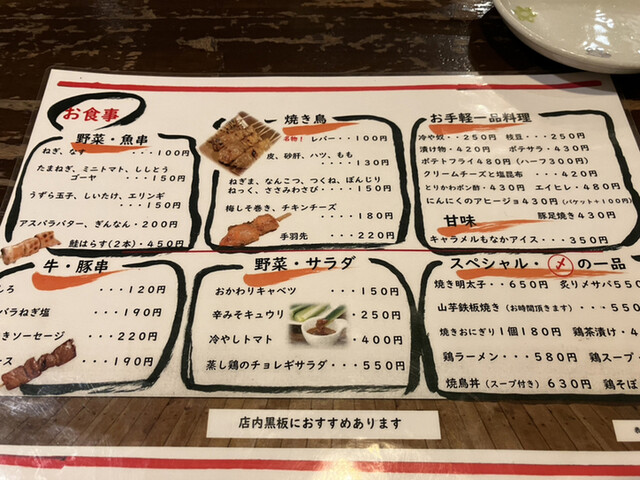 お食事
野菜・魚串
ねぎ、なす ・・・100円
たまねぎ、ミニトマト、ししとう
ゴーヤ ・・・150円
うずら玉子、しいたけ、エリンギ
・・・150円
アスパラバター、ぎんなん・200円
鮭はらす(2本)・450円
焼き鳥
名物! レバー・・・100円
皮、砂肝、ハツ、もも
・・・130円
ねぎま、なんこつ、つくね、ぼんじり
ねっく、ささみわさび・・・150円
梅しそ巻き、チキンチーズ
・・・180円
手羽先 ・・・220円
お手軽一品料理
冷や奴・・・250円 枝豆・・・250円
漬け物・・420円 ポテサラ・430円
ポテトフライ480円(ハーフ300円)
クリームチーズと塩昆布 ・・・420円
とりかわポン酢・430円 エイヒレ・480円
にんにくのアヒージョ430円(バケット+100円)
甘味 豚足焼き430円
キャラメルもなかアイス・・・350円
牛・豚串
しろ ・・・120円
バラねぎ塩 ・・・190円
きソーセージ ・・・220円
ース ・・・190円
野菜・サラダ
おかわりキャベツ ・・・150円
辛みそキュウリ ・・・250円
冷やしトマト ・・・400円
蒸し鶏のチョレギサラダ・・・550円
スペシャル・〆の一品
焼き明太子・・650円 炙りメサバ55
山芋鉄板焼き(お時間頂きます)・・・550
焼きおにぎり1個180円 鶏茶漬け・4
鶏ラーメン・・・580円 鶏スープ・
焼鳥丼(スープ付き)630円 鶏そぼ
店内黒板におすすめあります